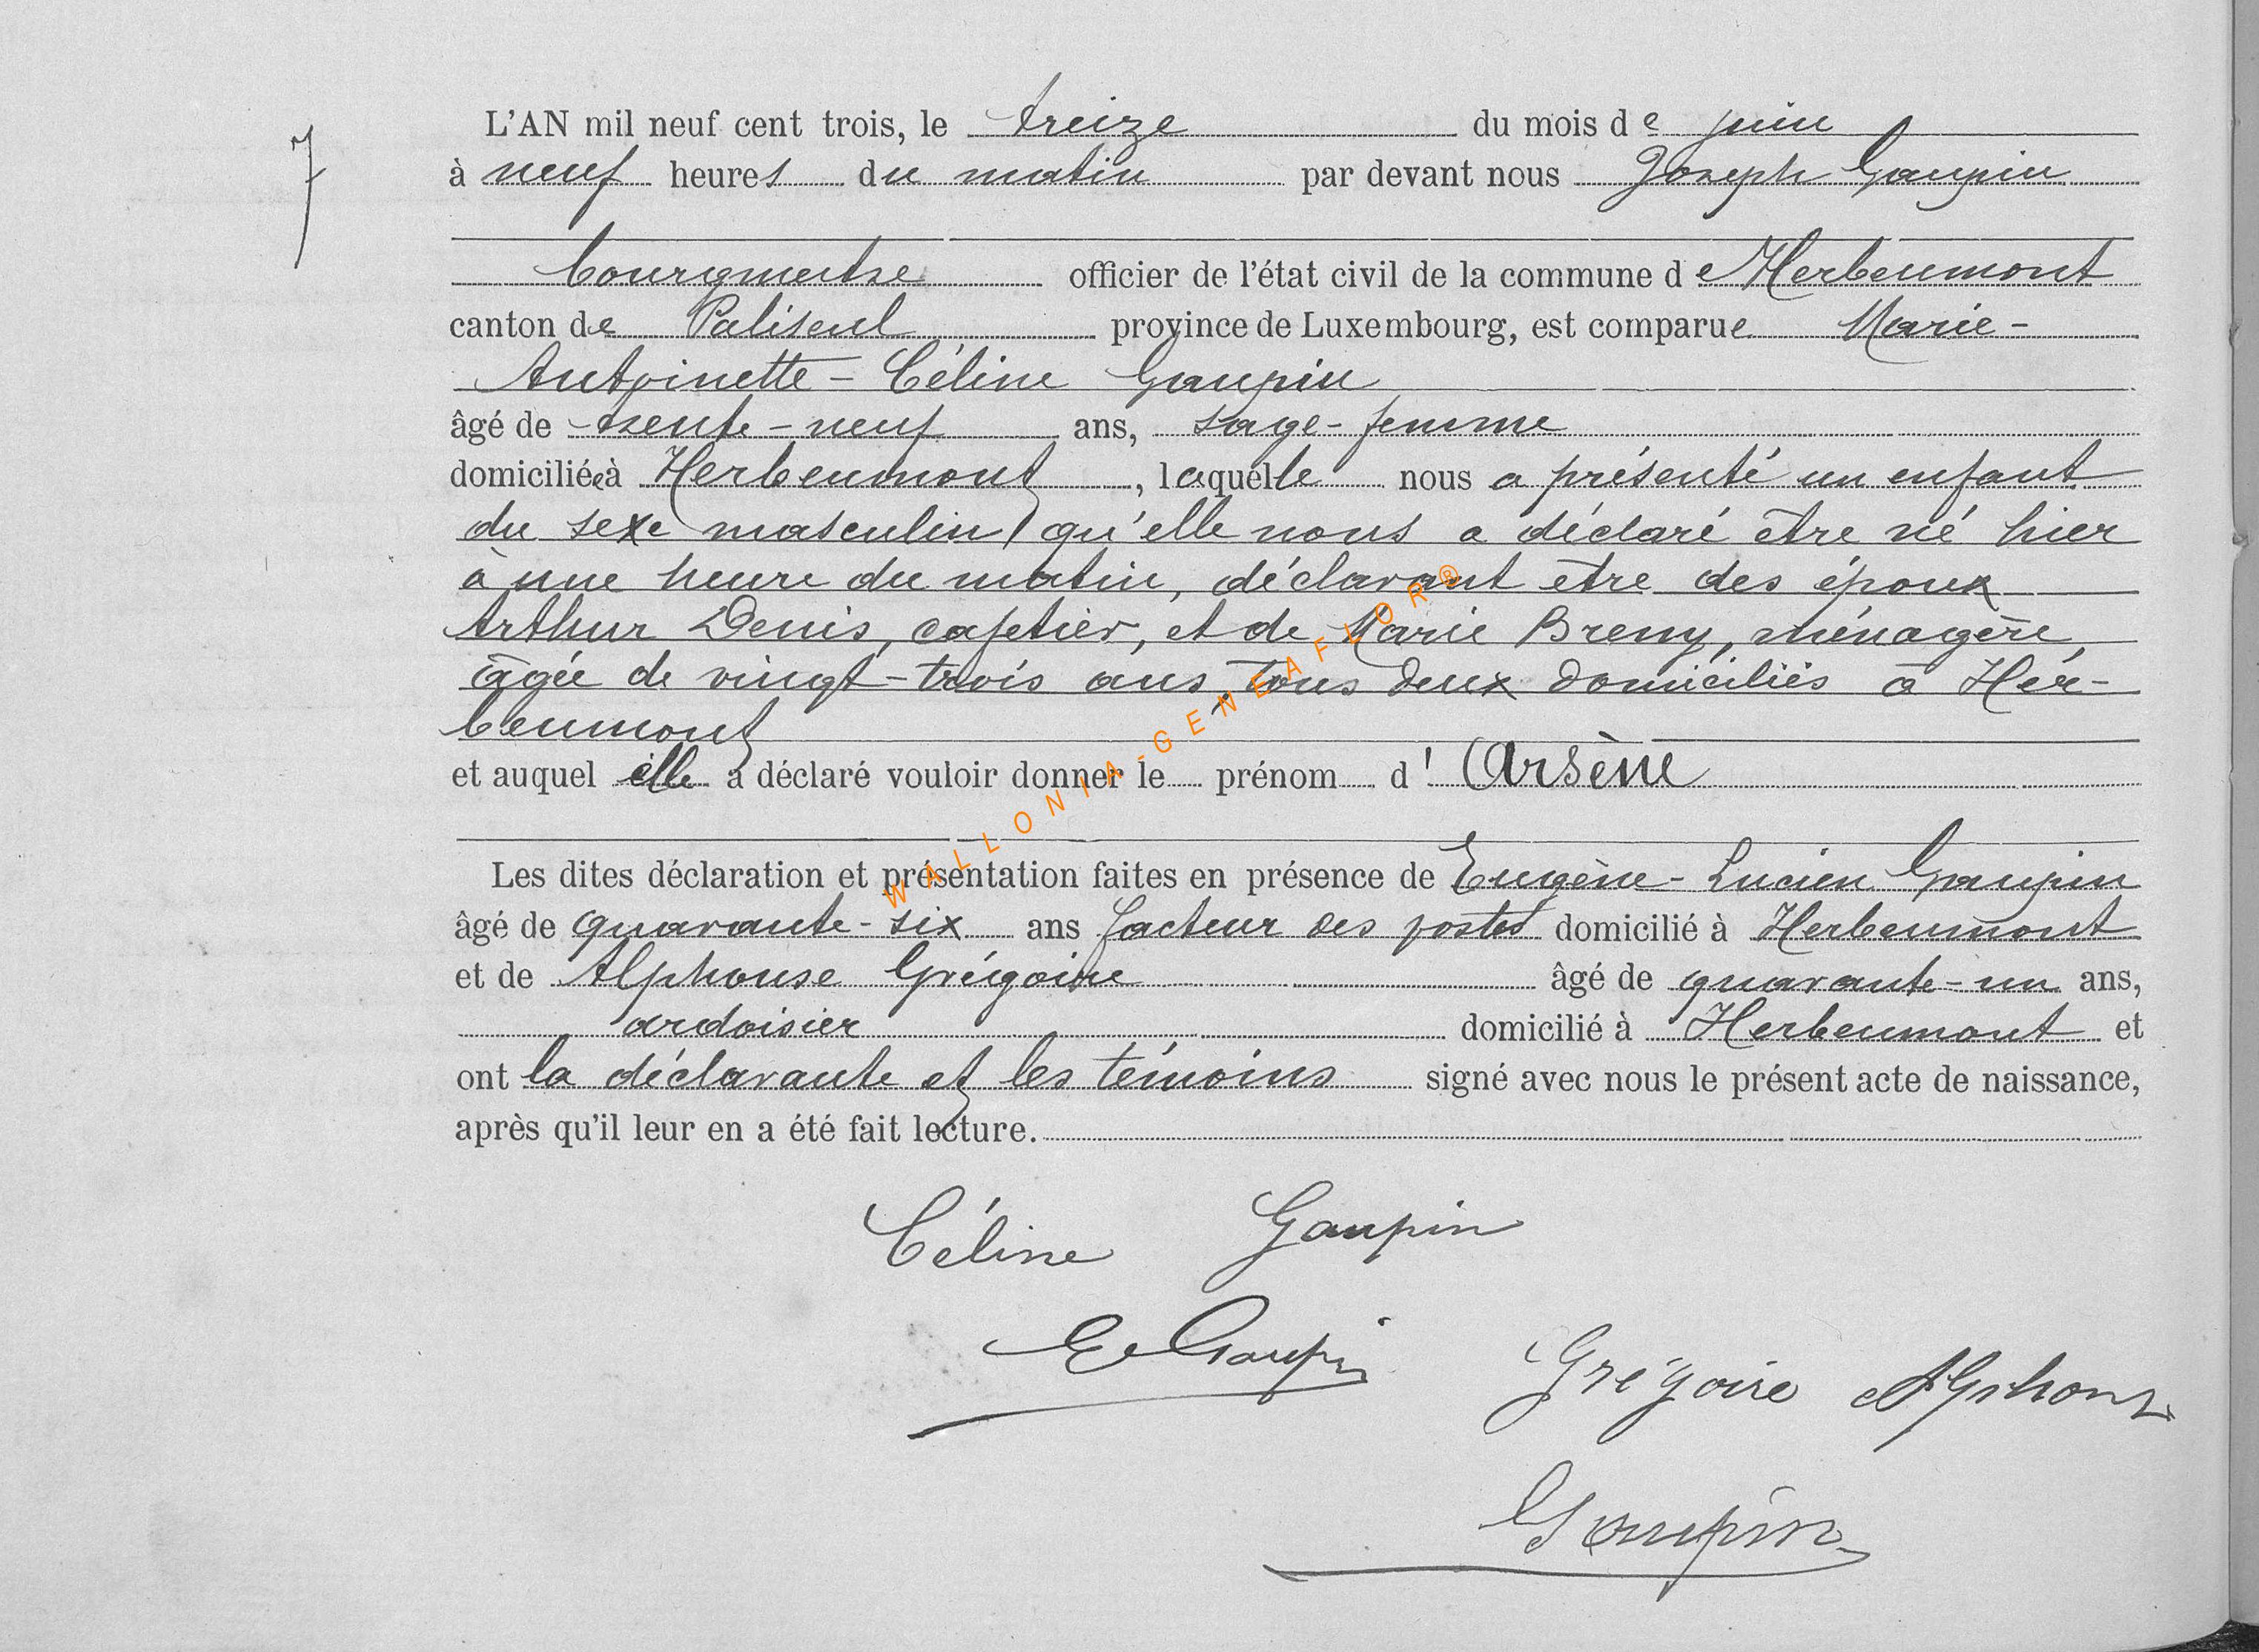 7
L'AN mil neuf cent trois, le treize du mois de juin
à neuf heures du matin par devant nous Joseph Gaupin
bourgmestre officier de l'état civil de la commune de Herbeumont
canton de Paliseul province de Luxembourg, est comparue Marie-
Antoinette - Céline Gaupin
âgé de trente-neuf ans, sage-femme
domiciliée à Herbeumont, laquelle nous a présenté un enfant
du sexe masculin qu'elle nous a déclaré être né hier
à une heure du matin, déclarant être des époux
Arthur Denis, cafetier, et de Marie Breny, ménagère,
âgée de vingt-trois ans, tous deux domiciliés à Her-
beumont
et auquel elle a déclaré vouloir donner le prénom d'Arsène
Les dites déclaration et présentation faites en présence de Eugène-Lucien Gaupin
âgé de quarante-six ans facteur des postes domicilié à Herbeumont
et de Alphonse Grégoire âgé de quarante-un ans,
ardoisier domicilié à Herbeumont et
ont la déclarante et les témoins signé avec nous le présent acte de naissance,
après qu'il leur en a été fait lecture.
Céline Gaupin
E Gaupin
Grégoire Alphons
Gaupin
WALLONIA-GENEAFLOR®